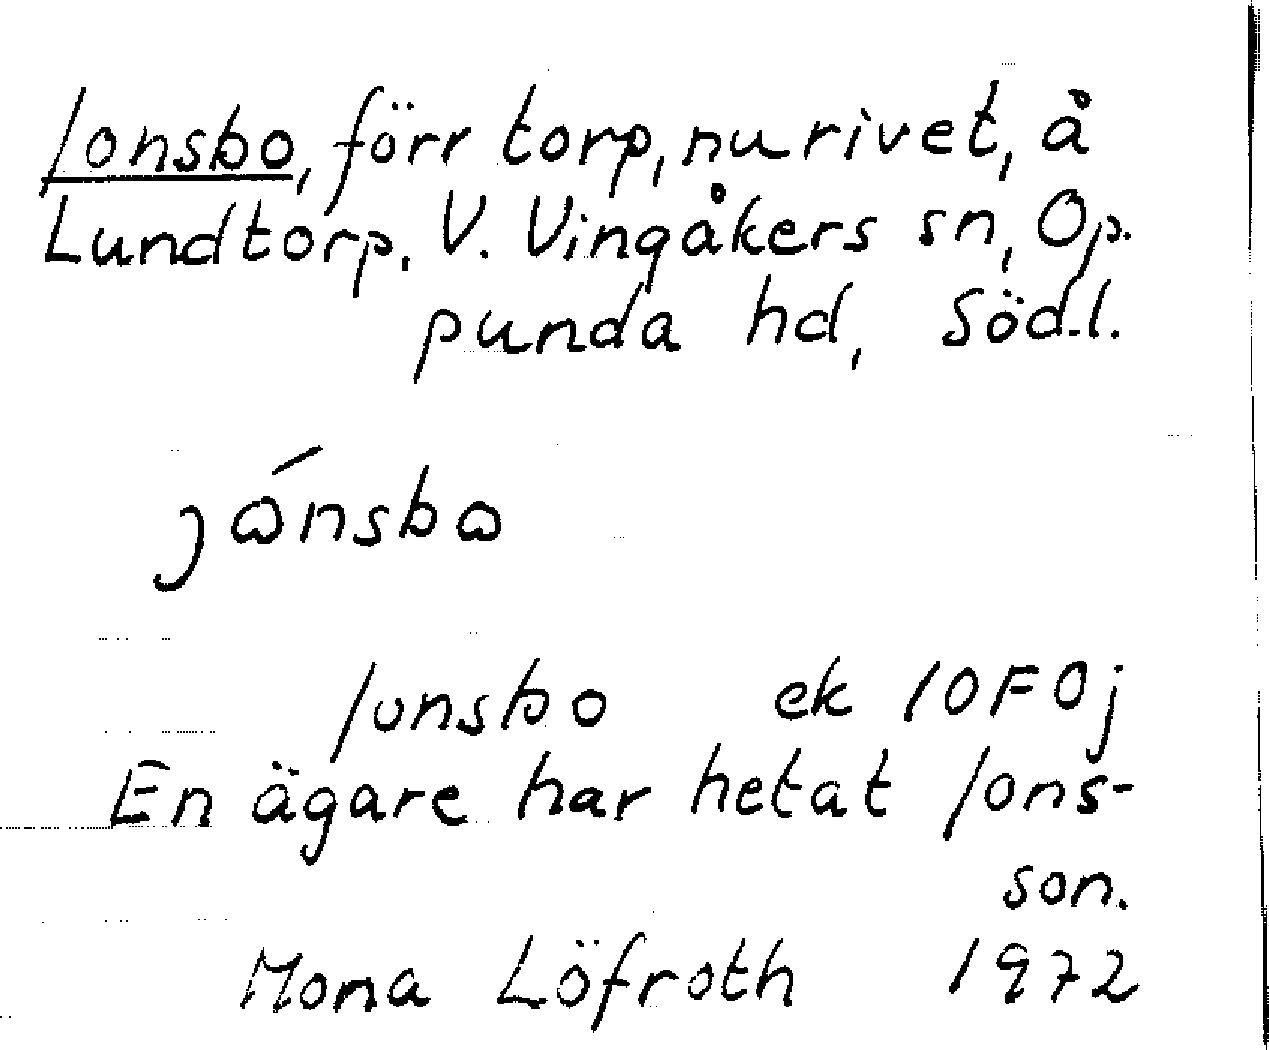 Jonsbo, förr torp, nu rivet, å
Lundtorp, V. Vingåkers sn, Op.
punda hd, Södl.
jónsbo
Jonsbo ek 10F0j
En ägare har hetat Jons-
son.
Mona Löfroth 1972